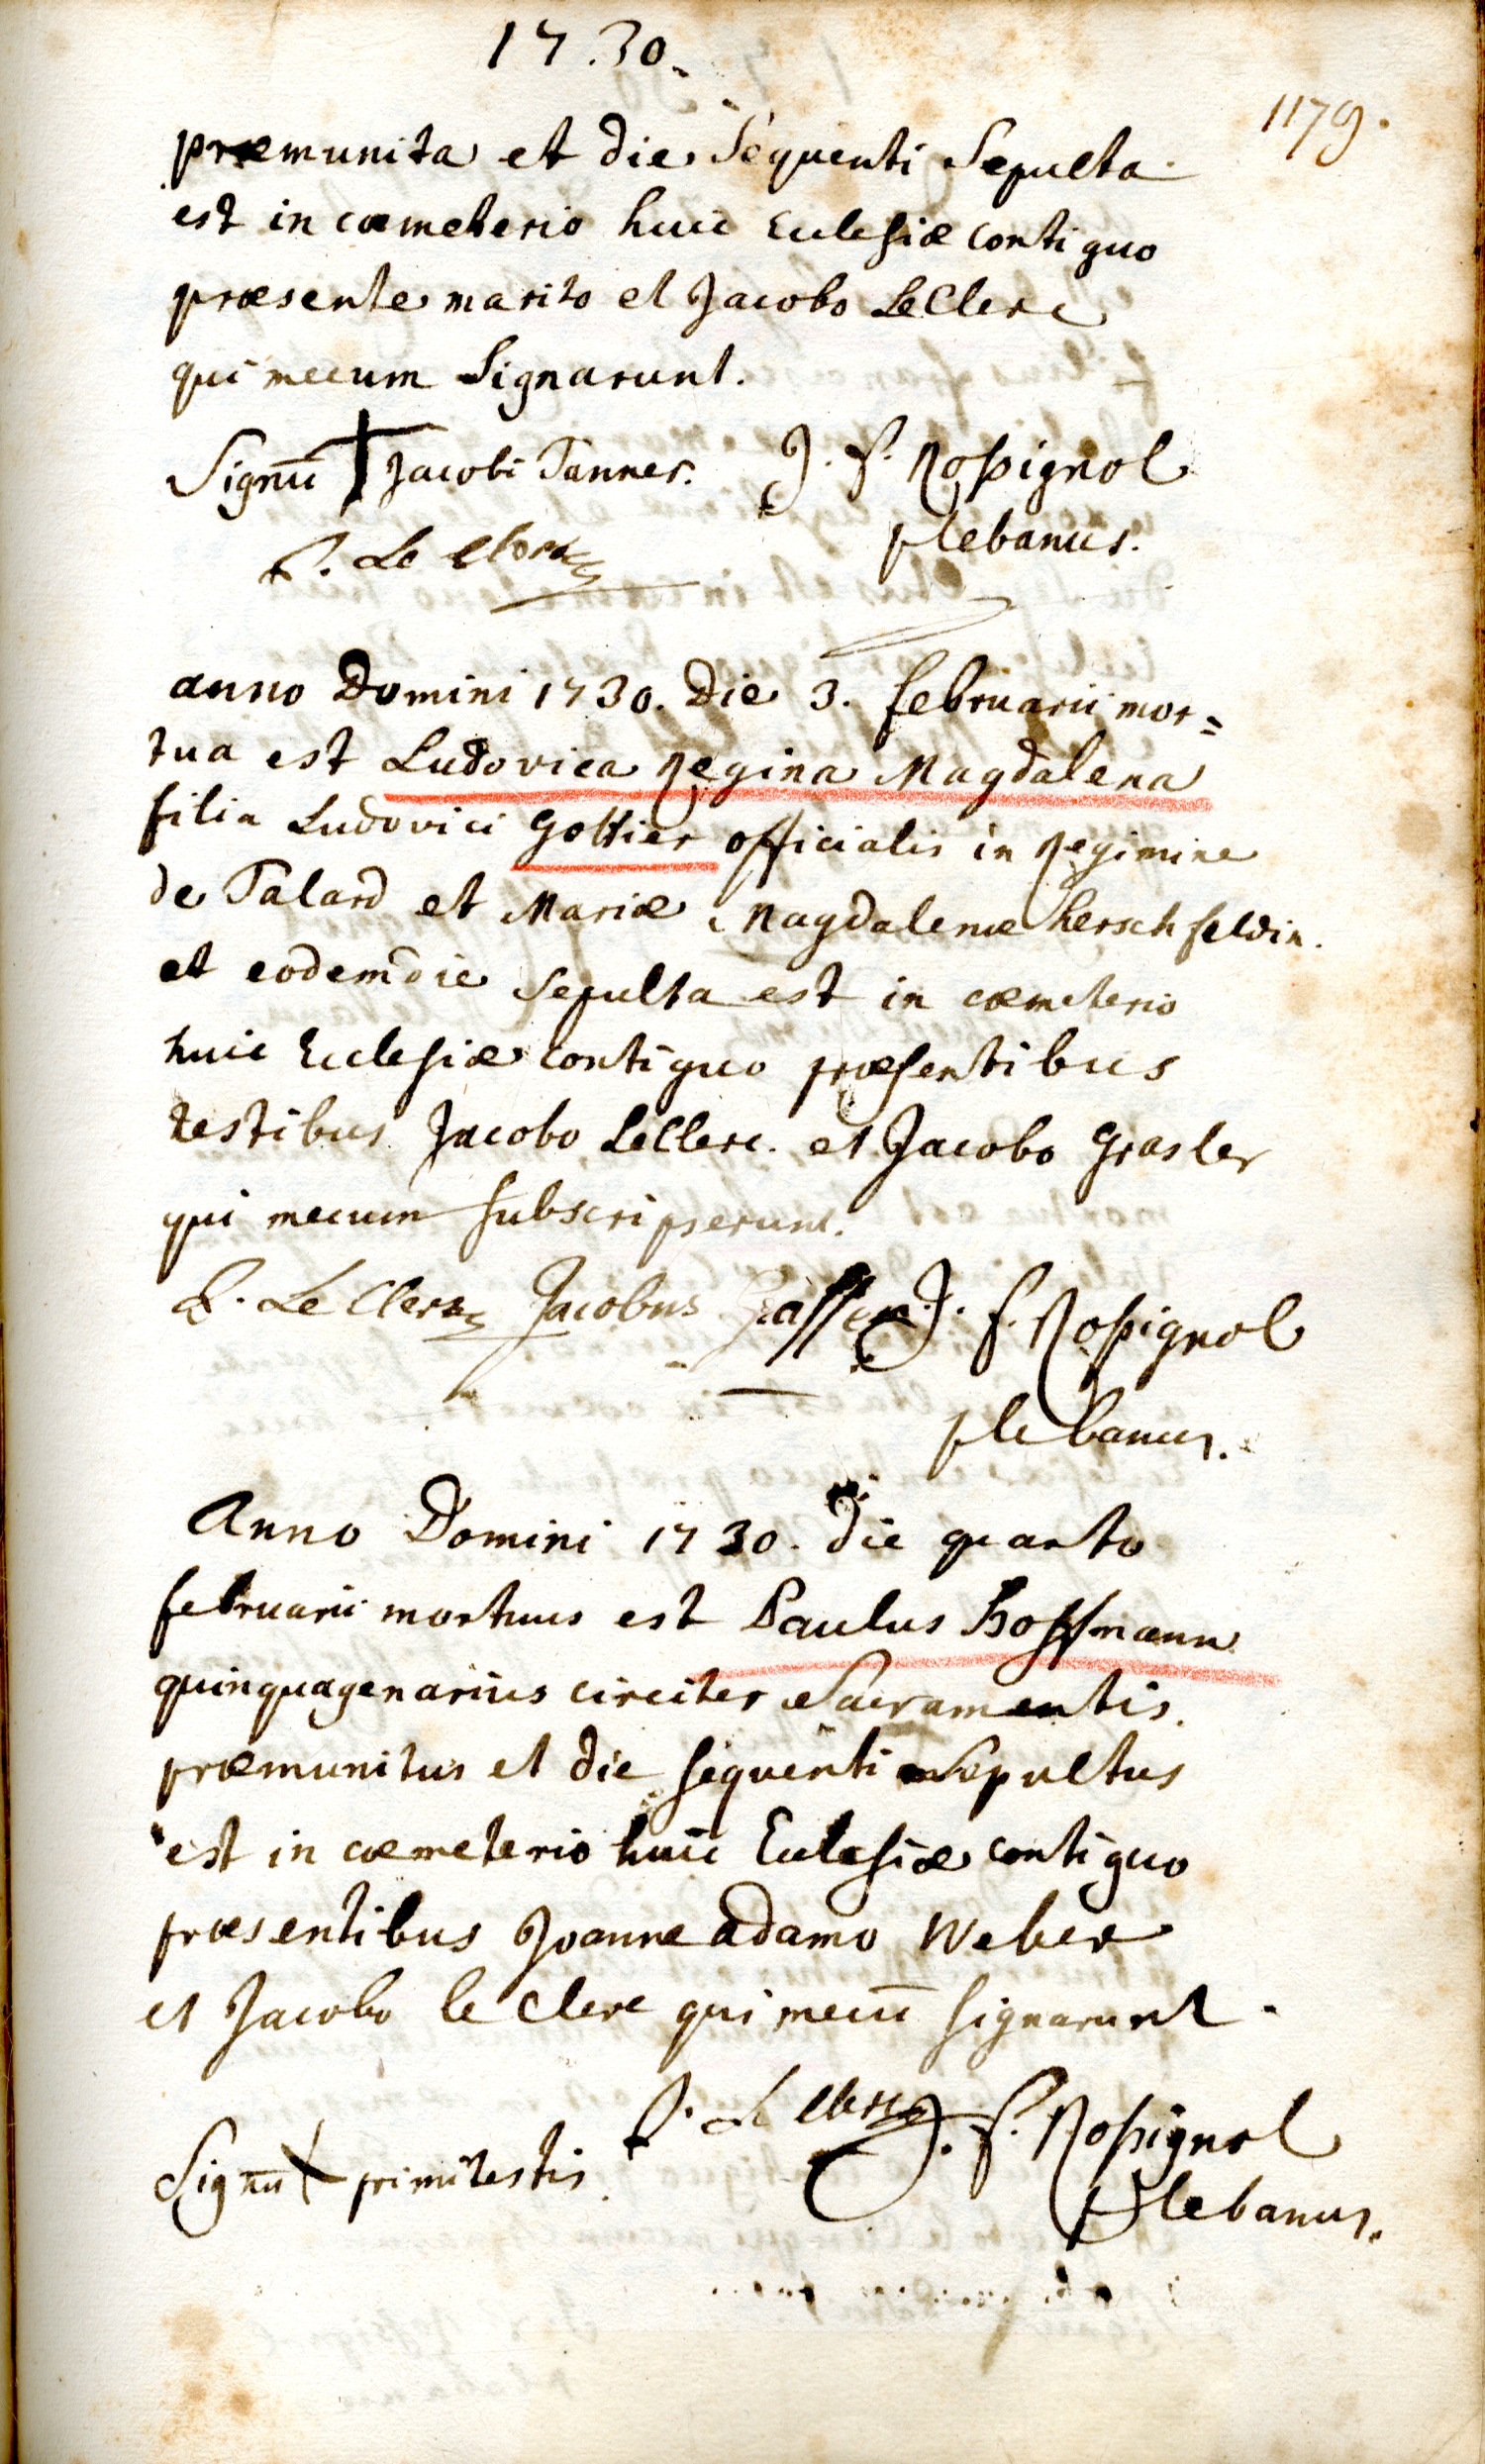 17.30.
1179.
præmunita et die sequenti sepulta
est in cœmeterio huic Ecclesiæ contiguo
præsente marito et Jacobo LeClerc
qui mecum signarunt.
Signū Jacobi Tanner. J. f. Roßignol
plebanus.
J. Le Clerc
anno Domini 1730. Die 3. februarii mor=
tua est Ludovica Regina Magdalena
filia Ludovici Goltier officialis in Regimine
de Talard et Mariæ Magdalenæ herschfeldin.
et eodem die sepulta est in cœmeterio
huic Ecclesiæ contiguo præsentibus
testibus Jacobo LeClerc. et Jacobo Grasler
qui mecum subscripserunt.
J. Le Clerc Jacobus J. f. Roßignol
plebanus.
Anno Domini 1730. die quarto
februarii mortuus est Paulus Hoffmann
quinquagenarius circiter Sacramentis.
præmunitus et die sequenti Sepultus
est in cœmeterio huic Ecclesiæ contiguo
præsentibus Joanne adamo Weber
et Jacobo le Clerc qui mecū signarunt.
J. Le Clerc J. f. Roßignol
Signū primi testis
Plebanus.